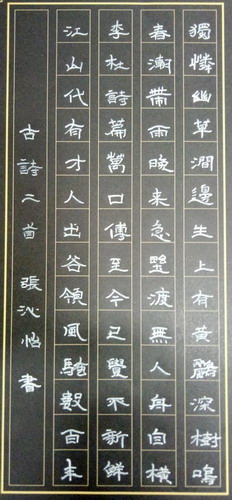 獨憐幽草澗邊生上有黃鸝深樹鳴
春潮帶雨晚來急野渡無人舟自橫
李杜詩篇萬口傳至今已覺不新鮮
江山代有才人出各領風騷數百年
古詩二首 張沁怡書